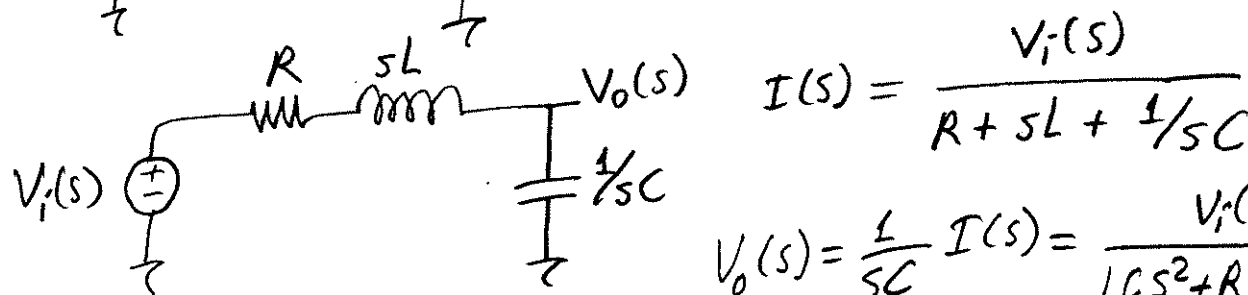 R sL V₀(s)
Vᵢ(s) + −
1/sC
I(s) = Vᵢ(s) / (R + sL + 1/sC
V₀(s) = 1/sC I(s) = Vᵢ( / LCS² + R